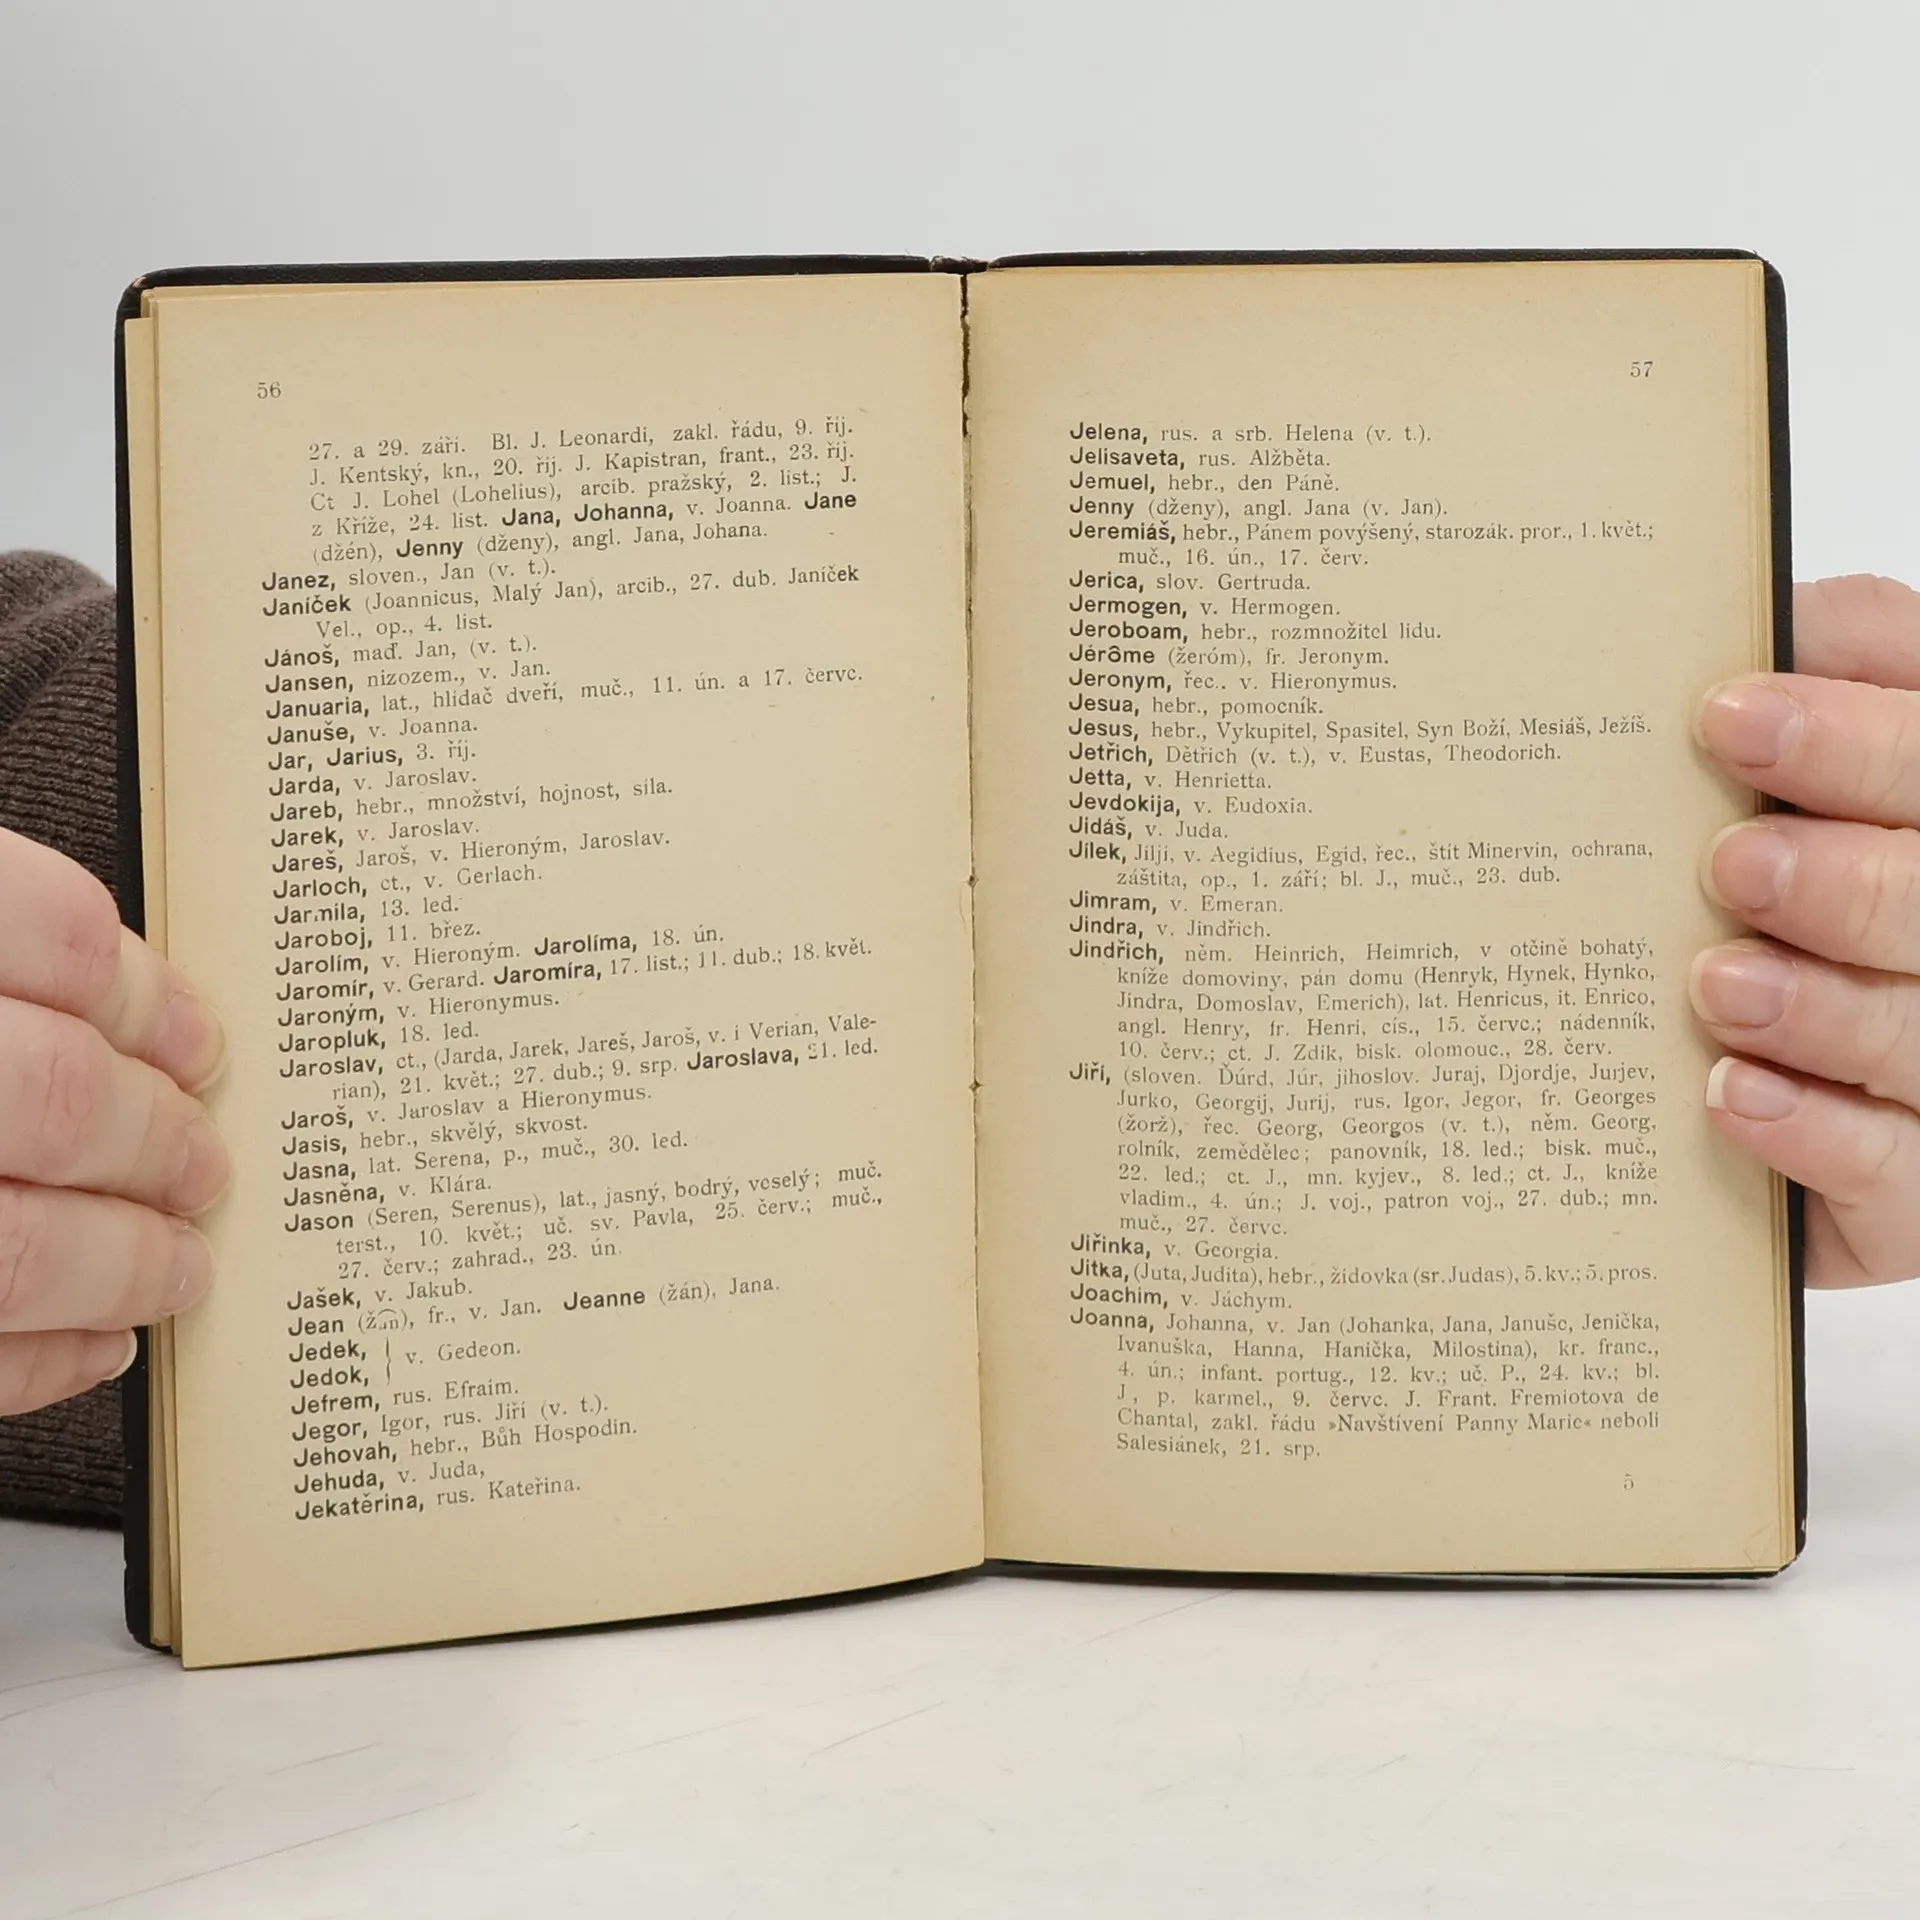 56
27. a 29. září. Bl. J. Leonardi, zakl. řádu, 9. říj.
J. Kentský, kn., 20. říj. J. Kapistran, frant., 23. říj.
Ct J. Lohel (Lohelius), arcib. pražský, 2. list.; J.
z Kříže, 24. list. Jana, Johanna, v. Joanna. Jane
(džén), Jenny (dženy), angl. Jana, Johana.
Janez, sloven., Jan (v. t.).
Janíček (Joannicus, Malý Jan), arcib., 27. dub. Janíček
Vel., op., 4. list.
Jánoš, maď. Jan, (v. t.).
Jansen, nizozem., v. Jan.
Januaria, lat., hlídač dveří, muč., 11. ún. a 17. červc.
Januše, v. Joanna.
Jar, Jarius, 3. říj.
Jarda, v. Jaroslav.
Jareb, hebr., množství, hojnost, síla.
Jarek, v. Jaroslav.
Jareš, Jaroš, v. Hieroným, Jaroslav.
Jarloch, ct., v. Gerlach.
Jarmila, 13. led.
Jaroboj, 11. břez.
Jarolím, v. Hieroným. Jarolíma, 18. ún.
Jaromír, v. Gerard. Jaromíra, 17. list.; 11. dub.; 18. květ.
Jaroným, v. Hieronymus.
Jaropluk, 18. led.
Jaroslav, ct., (Jarda, Jarek, Jareš, Jaroš, v. i Verian, Vale-
rian), 21. květ.; 27. dub.; 9. srp. Jaroslava, 21. led.
Jaroš, v. Jaroslav a Hieronymus.
Jasis, hebr., skvělý, skvost.
Jasna, lat. Serena, p., muč., 30. led.
Jasněna, v. Klára.
Jason (Seren, Serenus), lat., jasný, bodrý, veselý; muč.
terst., 10. květ.; uč. sv. Pavla, 25. červ.; muč.,
27. červ.; zahrad., 23. ún.
Jašek, v. Jakub.
Jean (žan), fr., v. Jan. Jeanne (žán), Jana.
Jedek, } v. Gedeon.
Jedok,
Jefrem, rus. Efraim.
Jegor, Igor, rus. Jiří (v. t.).
Jehovah, hebr., Bůh Hospodin.
Jehuda, v. Juda,
Jekatěrina, rus. Kateřina.
57
Jelena, rus. a srb. Helena (v. t.).
Jelisaveta, rus. Alžběta.
Jemuel, hebr., den Páně.
Jenny (dženy), angl. Jana (v. Jan).
Jeremiáš, hebr., Pánem povýšený, starozák. pror., 1. květ.;
muč., 16. ún., 17. červ.
Jerica, slov. Gertruda.
Jermogen, v. Hermogen.
Jeroboam, hebr., rozmnožitel lidu.
Jérôme (žeróm), fr. Jeronym.
Jeronym, řec.. v. Hieronymus.
Jesua, hebr., pomocník.
Jesus, hebr., Vykupitel, Spasitel, Syn Boží, Mesiáš, Ježíš.
Jetřich, Dětřich (v. t.), v. Eustas, Theodorich.
Jetta, v. Henrietta.
Jevdokija, v. Eudoxia.
Jidáš, v. Juda.
Jílek, Jiljí, v. Aegidius, Egid, řec., štít Minervin, ochrana,
záštita, op., 1. září; bl. J., muč., 23. dub.
Jimram, v. Emeran.
Jindra, v. Jindřich.
Jindřich, něm. Heinrich, Heimrich, v otčině bohatý,
kníže domoviny, pán domu (Henryk, Hynek, Hynko,
Jindra, Domoslav, Emerich), lat. Henricus, it. Enrico,
angl. Henry, fr. Henri, cís., 15. červc.; nádenník,
10. červ.; ct. J. Zdík, bisk. olomouc., 28. červ.
Jiří, (sloven. Ďúrd, Júr, jihoslov. Juraj, Djordje, Jurjev,
Jurko, Georgij, Jurij, rus. Igor, Jegor, fr. Georges
(žorž), řec. Georg, Georgos (v. t.), něm. Georg,
rolník, zemědělec; panovník, 18. led.; bisk. muč.,
22. led.; ct. J., mn. kyjev., 8. led.; ct. J., kníže
vladim., 4. ún.; J. voj., patron voj., 27. dub.; mn.
muč., 27. červc.
Jiřinka, v. Georgia.
Jitka, (Juta, Judita), hebr., židovka (sr. Judas), 5. kv.; 5. pros.
Joachim, v. Jáchym.
Joanna, Johanna, v. Jan (Johanka, Jana, Januše, Jenička,
Ivanuška, Hanna, Hanička, Milostina), kr. franc.,
4. ún.; infant. portug., 12. kv.; uč. P., 24. kv.; bl.
J , p. karmel., 9. červc. J. Frant. Fremiotova de
Chantal, zakl. řádu »Navštívení Panny Marie« neboli
Salesiánek, 21. srp.
5